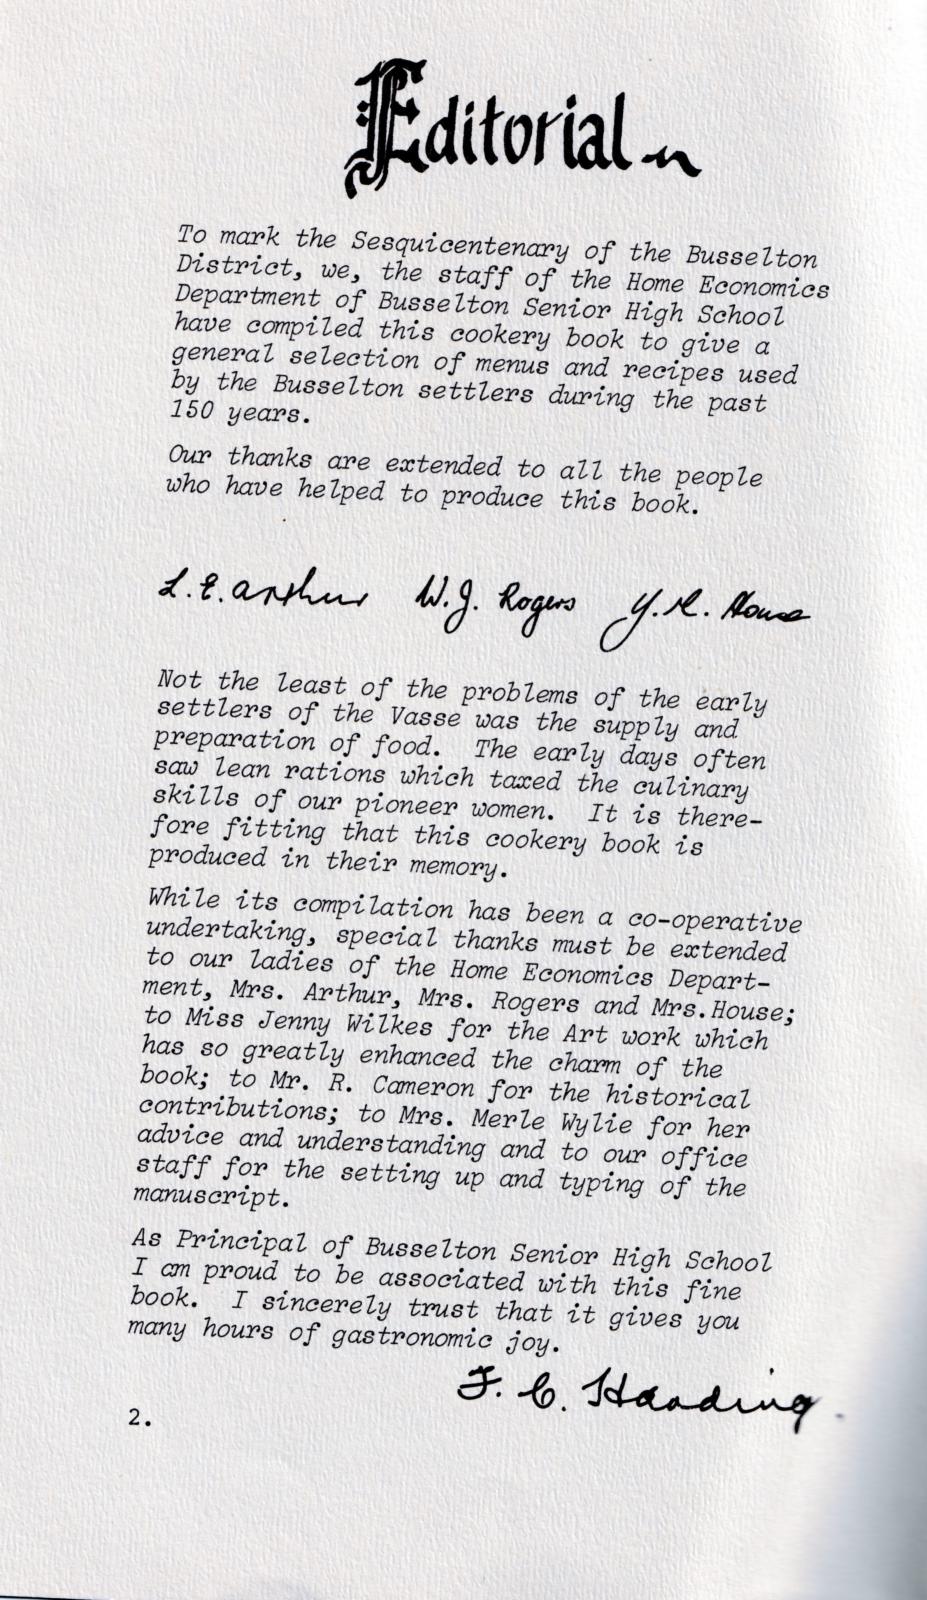 Editorial
To mark the Sesquicentenary of the Busselton
District, we, the staff of the Home Economics
Department of Busselton Senior High School
have compiled this cookery book to give a
general selection of menus and recipes used
by the Busselton settlers during the past
150 years.
Our thanks are extended to all the people
who have helped to produce this book.
L. E. Arthur W. J. Rogers Y. M. House
Not the least of the problems of the early
settlers of the Vasse was the supply and
preparation of food. The early days often
saw lean rations which taxed the culinary
skills of our pioneer women. It is there-
fore fitting that this cookery book is
produced in their memory.
While its compilation has been a co-operative
undertaking, special thanks must be extended
to our ladies of the Home Economics Depart-
ment, Mrs. Arthur, Mrs. Rogers and Mrs.House;
to Miss Jenny Wilkes for the Art work which
has so greatly enhanced the charm of the
book; to Mr. R. Cameron for the historical
contributions; to Mrs. Merle Wylie for her
advice and understanding and to our office
staff for the setting up and typing of the
manuscript.
As Principal of Busselton Senior High School
I am proud to be associated with this fine
book. I sincerely trust that it gives you
many hours of gastronomic joy.
F. C. Harding
2.